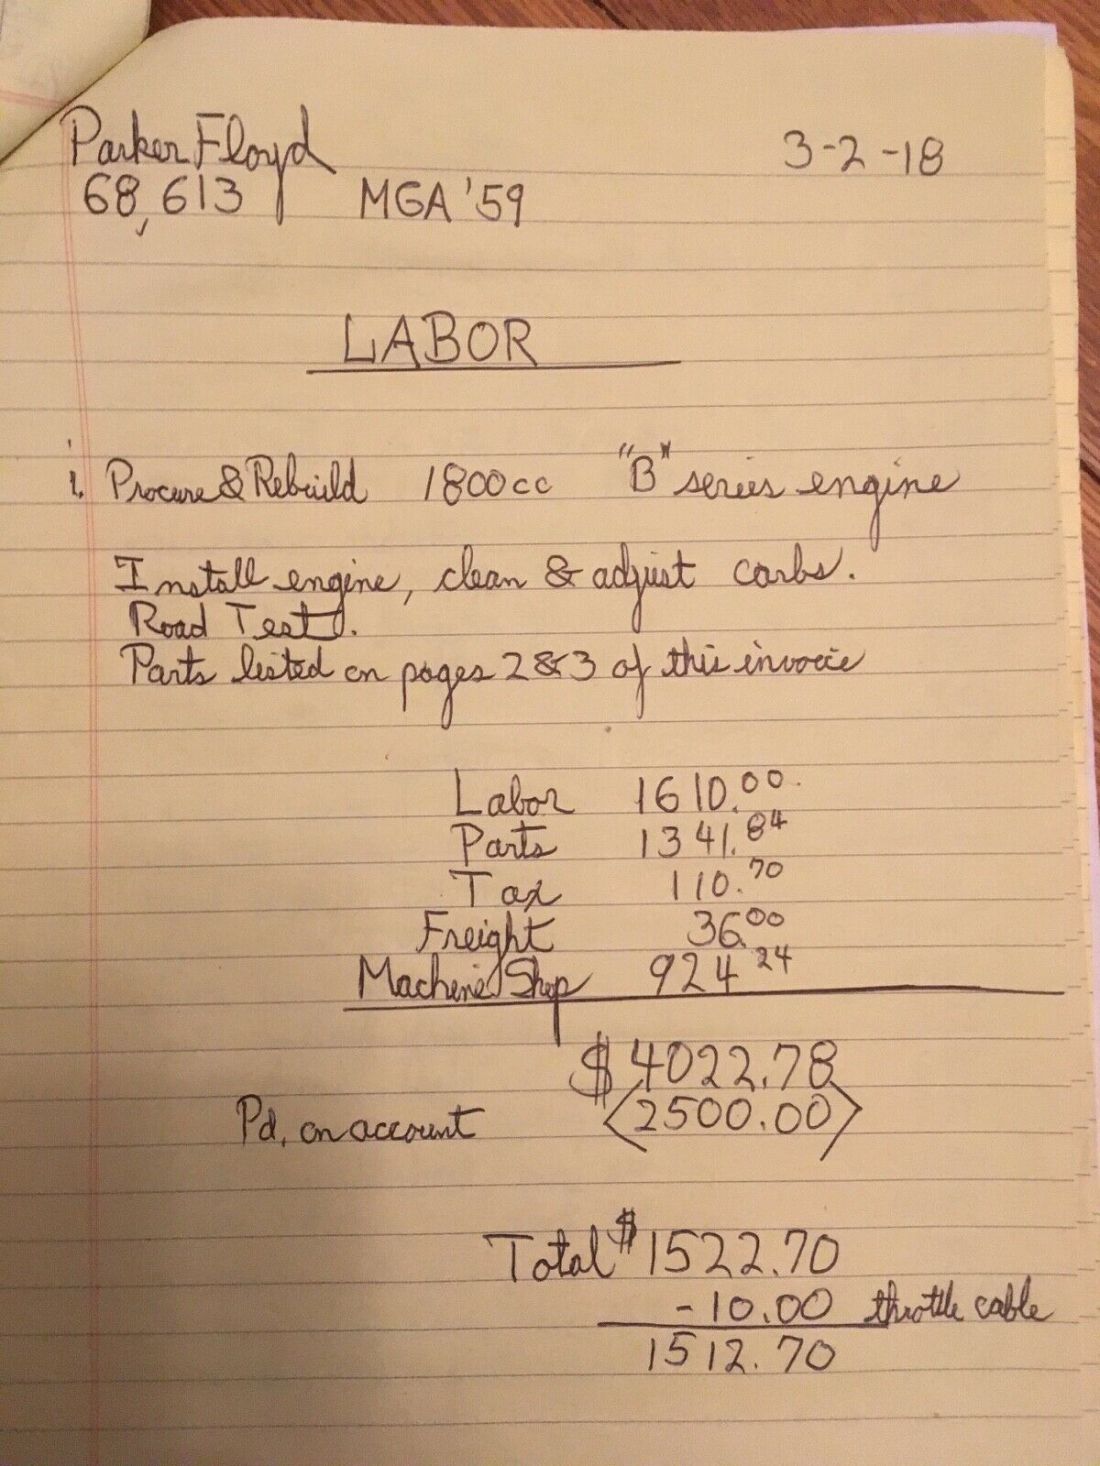 Parker Floyd 3-2-18
68,613 MGA '59
LABOR
1. Procure & Rebuild 1800cc "B" series engine
Install engine, clean & adjust carbs.
Road Test.
Parts listed on pages 2 & 3 of this invoice
Labor 1610.00
Parts 1341.84
Tax 110.70
Freight 36.00
Machine Shop 924 24
$4022.78
Pd. on account <2500.00>
Total $1522.70
-10.00 throttle cable
1512.70